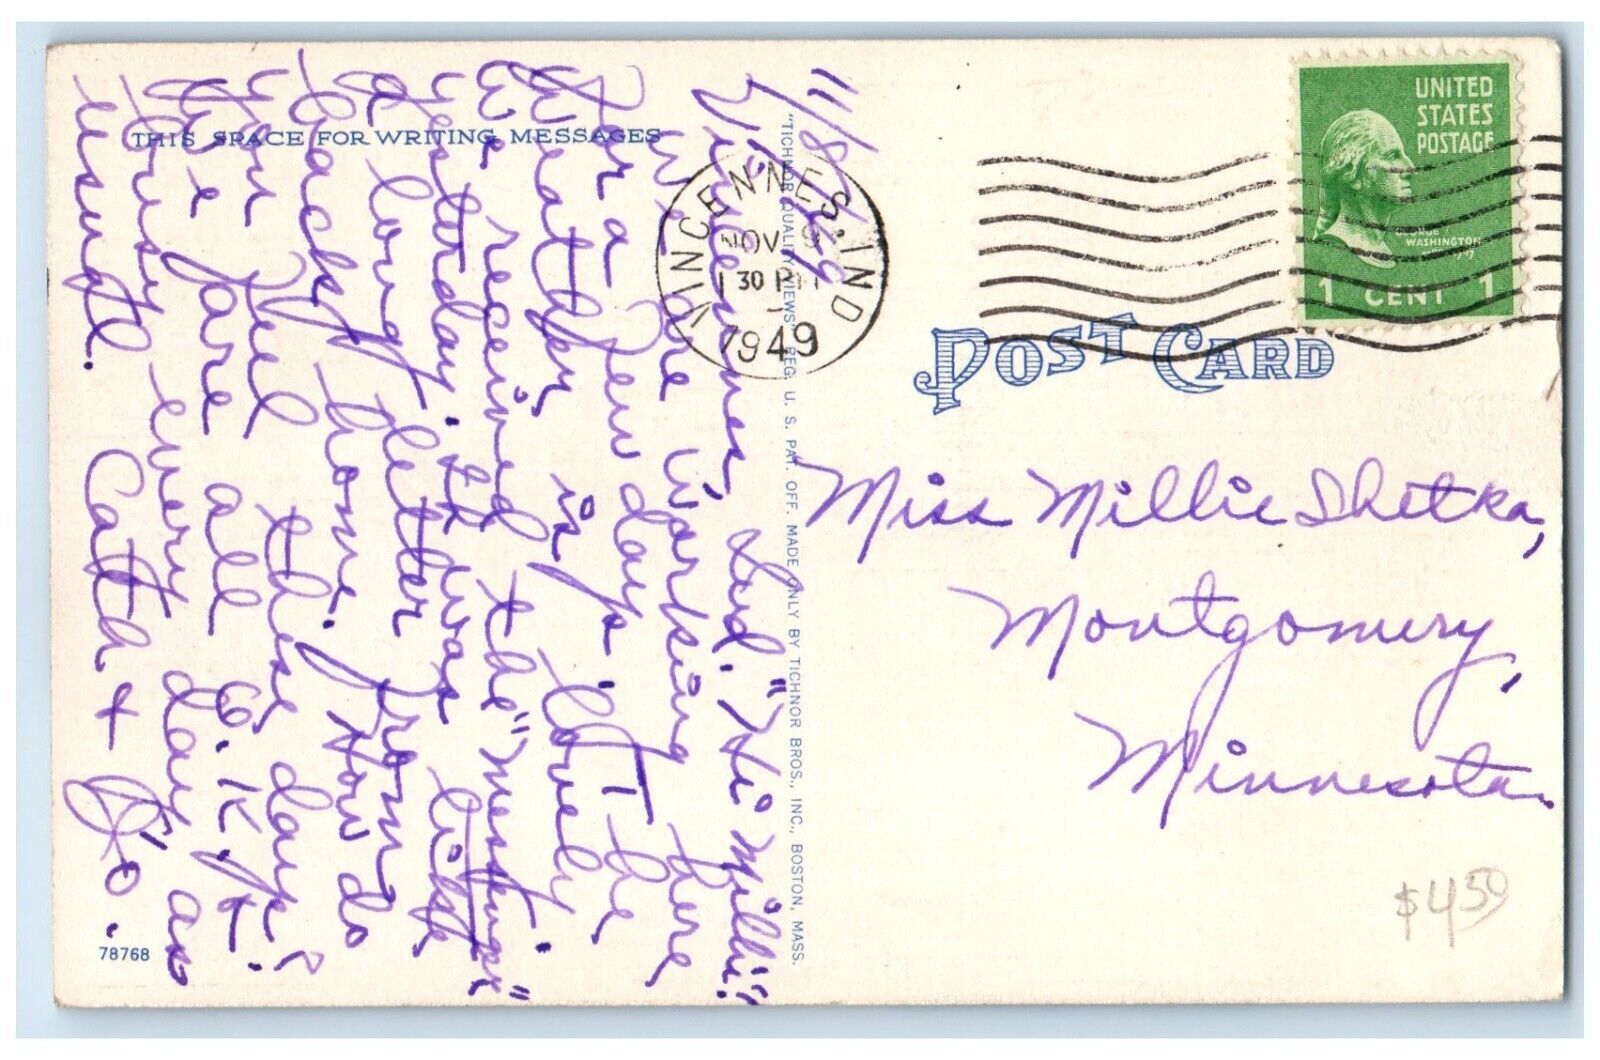 THIS SPACE FOR WRITING MESSAGES
11/8/49
Vincennes, Ind. "Hi Millie!"
We are working here
for a few days. The
weather is lovely.
We received the "Messenger"
yesterday. It was with
a long letter from
back home. How do
you feel these days?
We are all O.K. &
busy every day as
usual.
Cath + Jo.
78768
"TICHNOR QUALITY VIEWS" REG. U. S. PAT. OFF. MADE ONLY BY TICHNOR BROS., INC., BOSTON, MASS.
VINCENNES, IND
NOV
1 30 PM
1949
UNITED
STATES
POSTAGE
GEORGE
WASHINGTON
1 CENT 1
POST CARD
Miss Millie Shetka,
Montgomery,
Minnesota.
$4.50